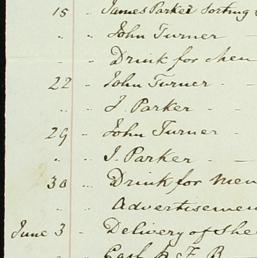 15 " James Parker Sorting
" " John Turner
" " Drink for Men
22 " John Turner
" " J Parker
29 " John Turner
" " J. Parker
30 " Drink for Men
" Advertisemen
June 3 " Delivery of She
" Cash